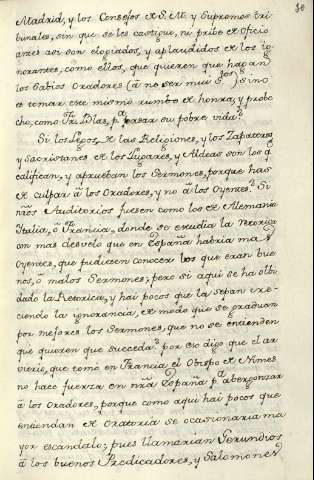 80
Madrid, y los Consejos de S. M. y Supremos tri
bunales, sin que se les castigue, ni prive de Oficio
antes asi son elogiados, y aplaudidos de los ig
norantes, como ellos, que quieren que hagan
los Sabios Oradores (â no ser mui S.tos) sino
es tomar este mismo rumbo de honra, y probe
cho, como Fr. Blas, p.a pasar su pobre vida?
Si los Legos de las Religiones, y los Zapateros
y Sacristanes de los Lugares, y Aldeas son los q.
califican, y aprueban los Sermones, porque has
de culpar â los Oradores, y no â los Oyentes? Si
nros Auditorios fuesen como los de Alemania
Italia, ô Francia, donde se estudia la Retorica
con mas desvelo que en España habria mas
Oyentes, que pudiesen conocer los que eran bue
nos, ô malos Sermones; pero si aqui se ha olbi
dado la Retorica, y hai pocos que la sepan cre
ciendo la ignorancia, de modo que se graduan
por mejores los Sermones, que no se entienden
que quieren que suceda? por eso digo que el ar
vitrio, que tomô en Francia el Obispo de Nimes
no hace fuerza en nra España p.a abergonzar
â los Oradores, porque como aqui hai pocos que
entiendan de Oratoria se ocasionaria ma
yor escandalo; pues llamarian Gerundios
â los buenos Predicadores, y Salomones